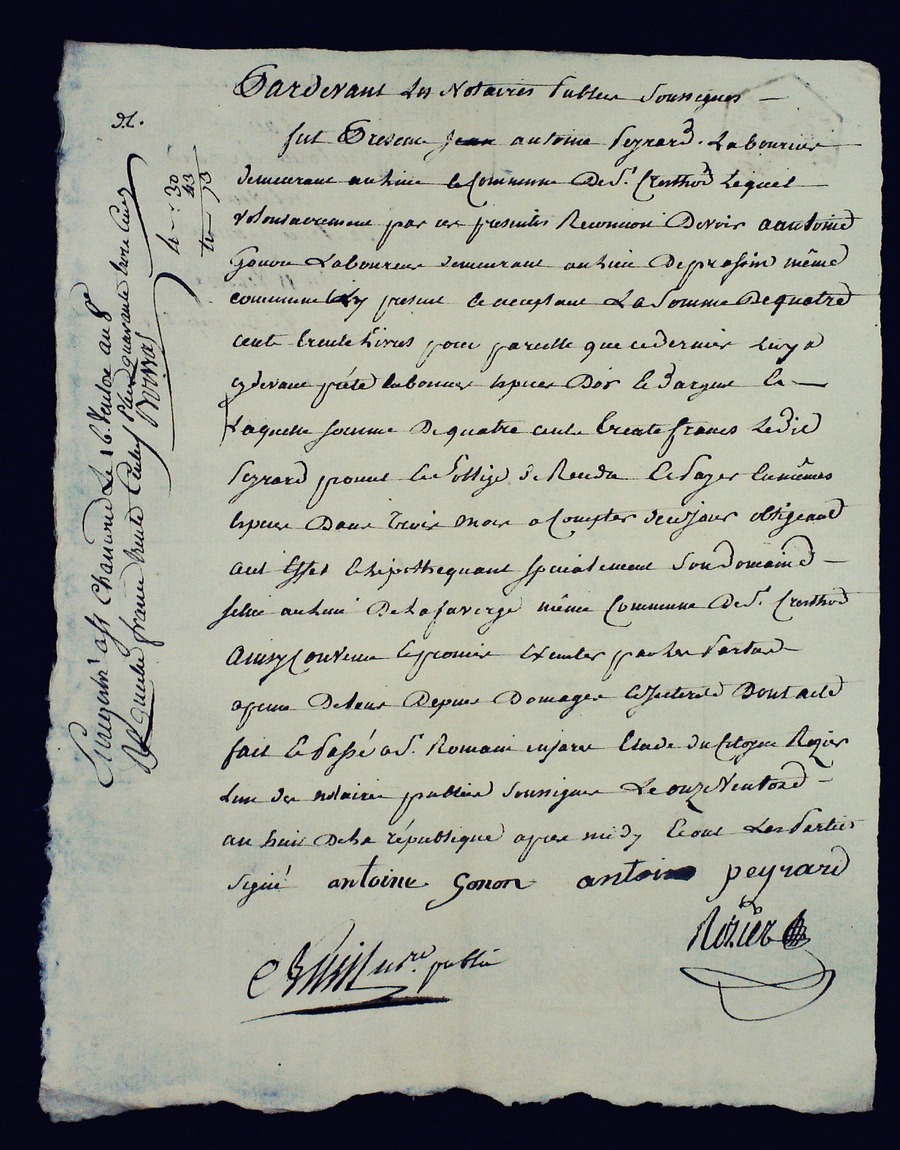 Pardevant Les Notaires Publics Soussignes
fut Present Jean antoine Peyrard. Laboureur
demeurant au lieu et Commune De St. Lequel
volontairement par ces presentes Reconnoit Devoir a antoine
Gonon Laboureur demeurant au lieu De même
commune icy present et acceptant La Somme De quatre
cents trente Livres pour pareille que ce dernier luy a
cy devant prété en bonnes espèces D'or et D'argent et
Laquelle somme De quatre cents trente francs Le Dit
Peyrard promet et s'oblige de Rendre et Payer en mêmes
espèces Dans Trois mois a Compter de ce jour obligeant
a cet Effet et hipothequant specialement Son Domaine
situé au lieu De La faverge même Commune De St.
Ainsy Convenu et promis Executer par les Parties
a peine De tous Depens Domages et interets Dont acte
fait et Passé a St. Romain en jarez Etude du Citoyen Rozier
L'un des notaires publics Soussignes Le onze Ventose
an huit De La république apres midy et ont Les Parties
signé antoine Gonon antoine peyrard
Rozier
nore. public
91.
Enregistré a St Chamond Le 16 Ventose an 8e
Reçu quatre francs trente Centes Plus quarante trois Cent
4 - 30
43
4 - 73